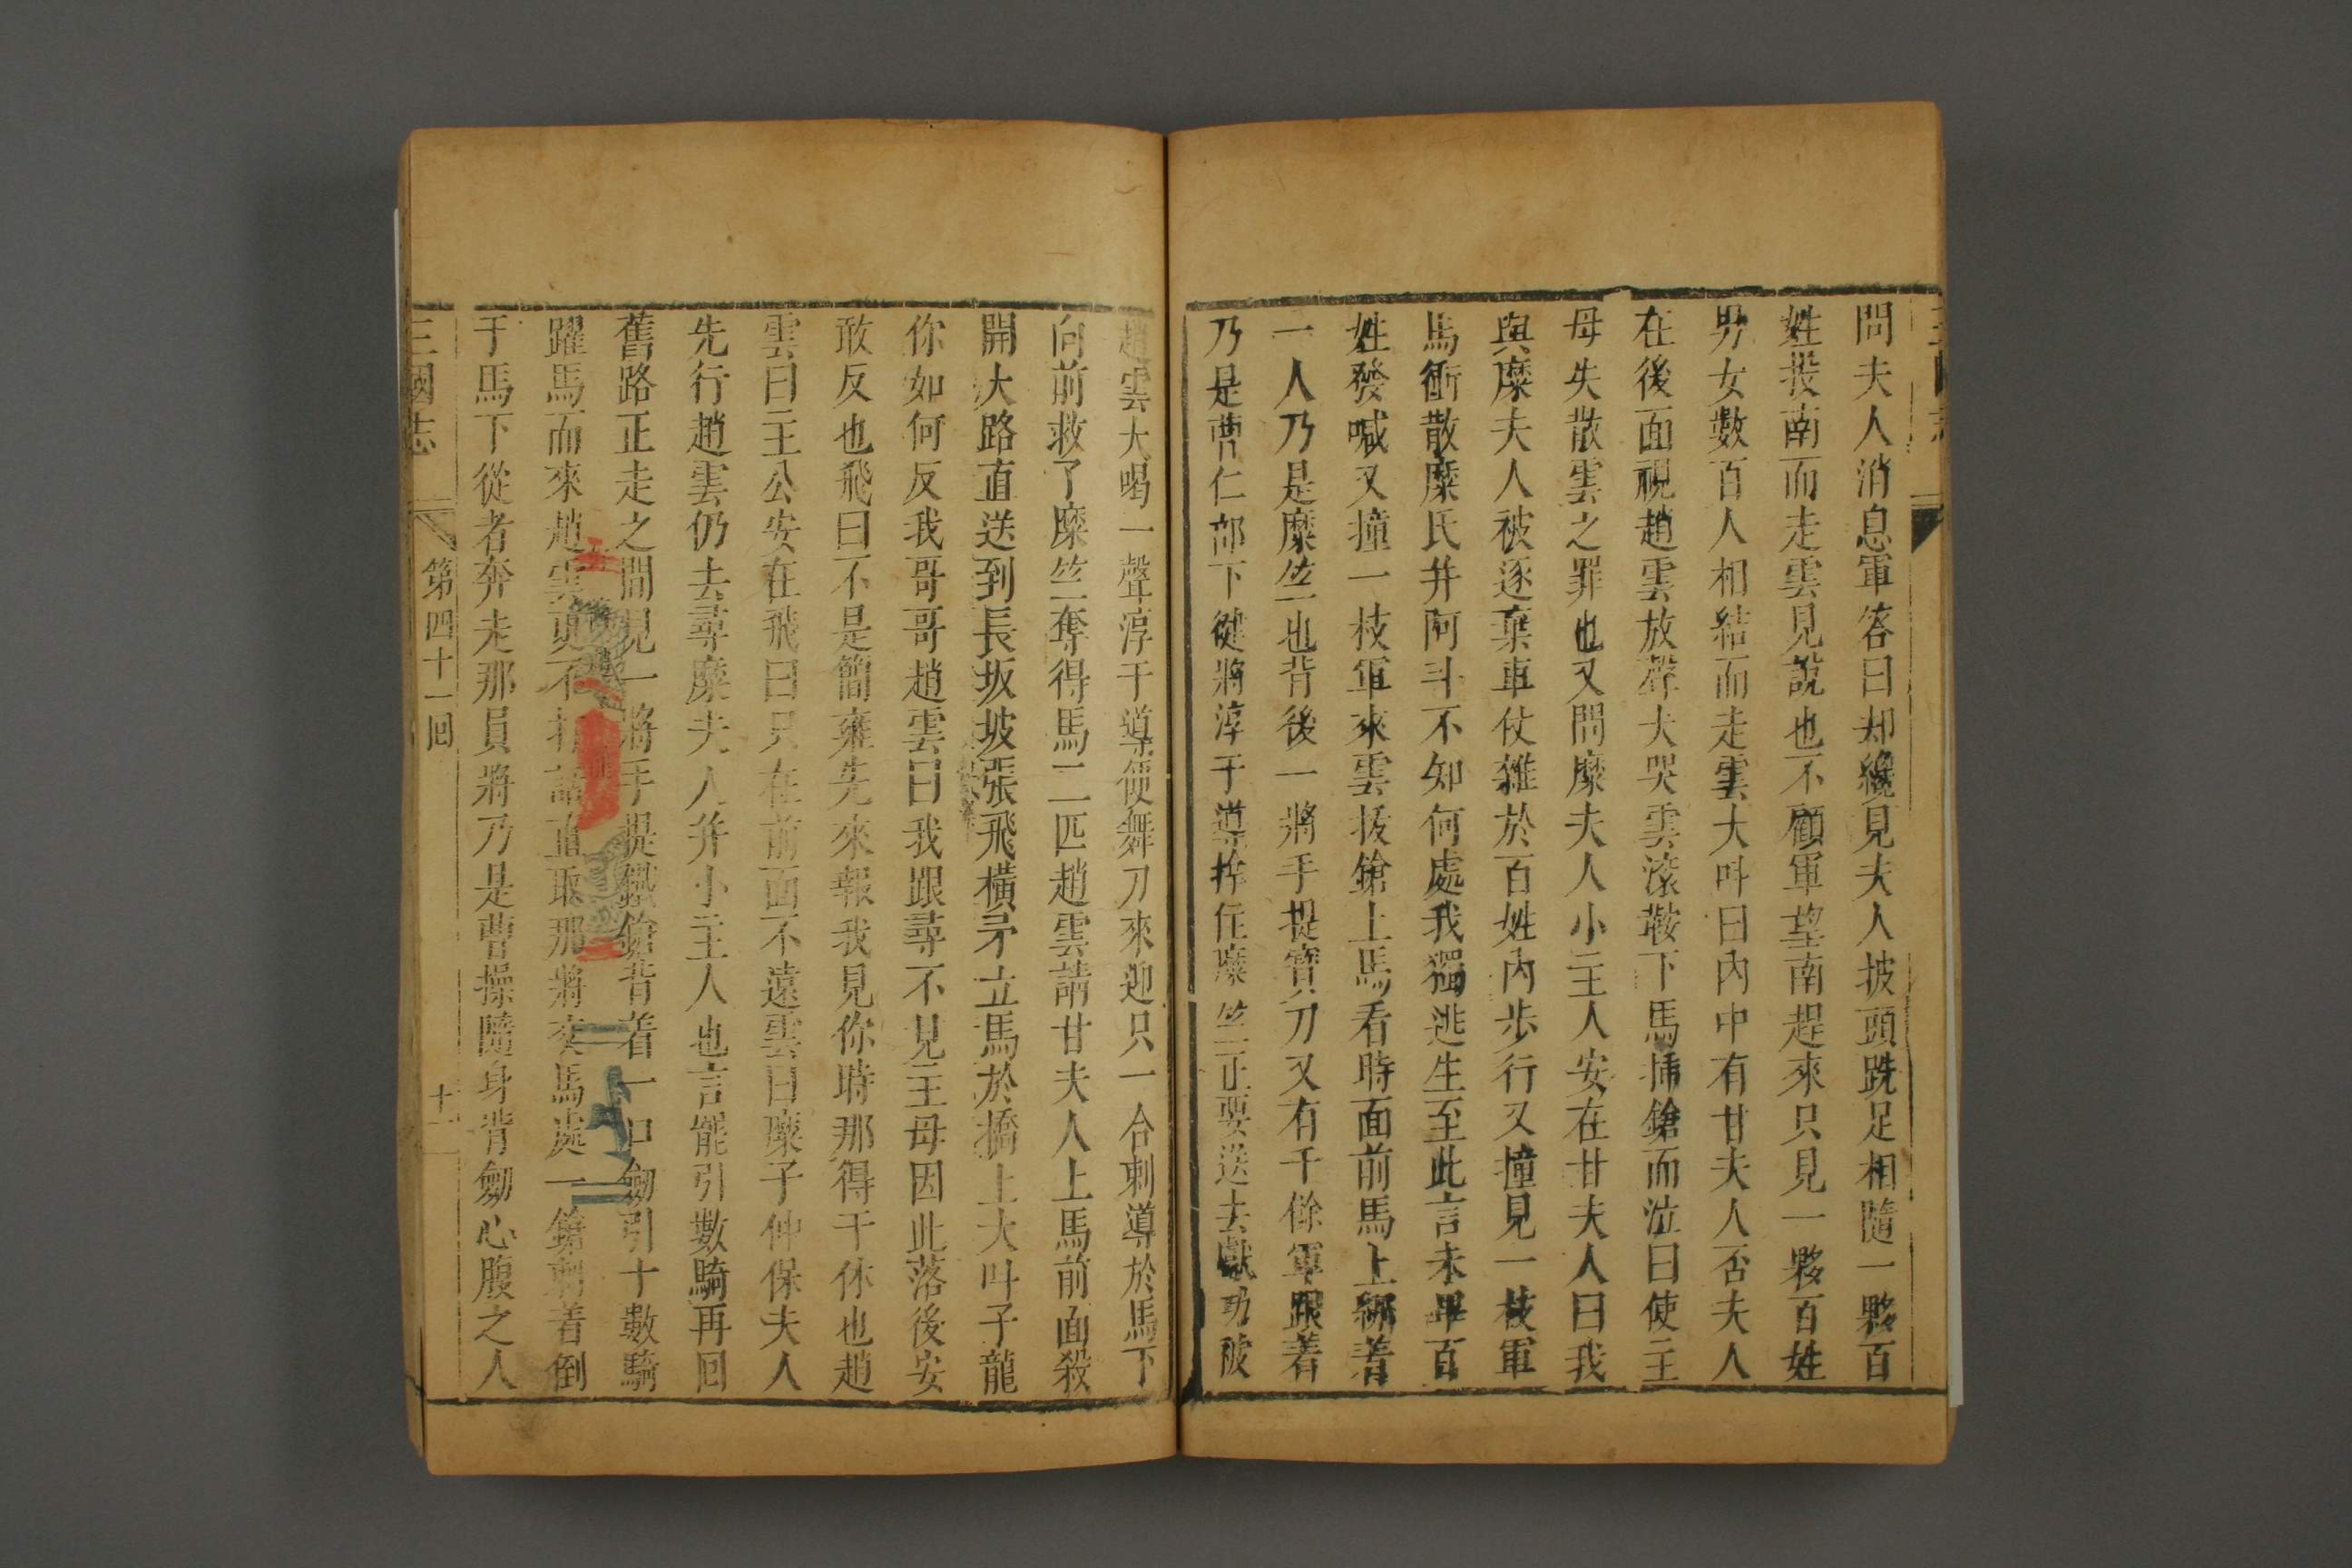 問夫人消息軍答曰却纔見夫人披頭跣足相隨一夥百
姓投南而走雲見說也不顧軍望南趕來只見一夥百姓
男女數百人相結而走雲大叫曰內中有甘夫人否夫人
在後面視趙雲放聲大哭雲滚鞍下馬揷鎗而泣曰使主
母失散雲之罪也又問糜夫人小主人安在甘夫人曰我
與糜夫人被逐棄車仗雜於百姓內步行又撞見一枝軍
馬衝散糜氏并阿斗不知何處我獨逃生至此言未畢百
姓發喊又撞一枝軍來雲拔鎗上馬看時面前馬上綁着
一人乃是糜竺也背後一將手提寶刀又有千餘軍跟着
乃是曹仁部下健將淳于導拴住糜竺正要送去獻功被
趙雲大喝一聲淳于導便舞刀來迎只一合刺導於馬下
向前救了糜竺奪得馬二匹趙雲請甘夫人上馬前面殺
開大路直送到長坂坡張飛橫矛立馬於橋上大叫子龍
你如何反我哥哥趙雲曰我跟尋不見主母因此落後安
敢反也飛曰不是簡雍先來報我見你時那得干休也趙
雲曰主公安在飛曰只在前面不遠雲曰糜子仲保夫人
先行趙雲仍去尋糜夫人并小主人也言罷引數騎再回
舊路正走之間見一將手提鐵鎗背着一口劒引十數騎
躍馬而來趙雲更不打話直取那將交馬處一鎗刺着倒
于馬下從者奔走那員將乃是曹操隨身背劒心腹之人
三國志 第四十一回 十一